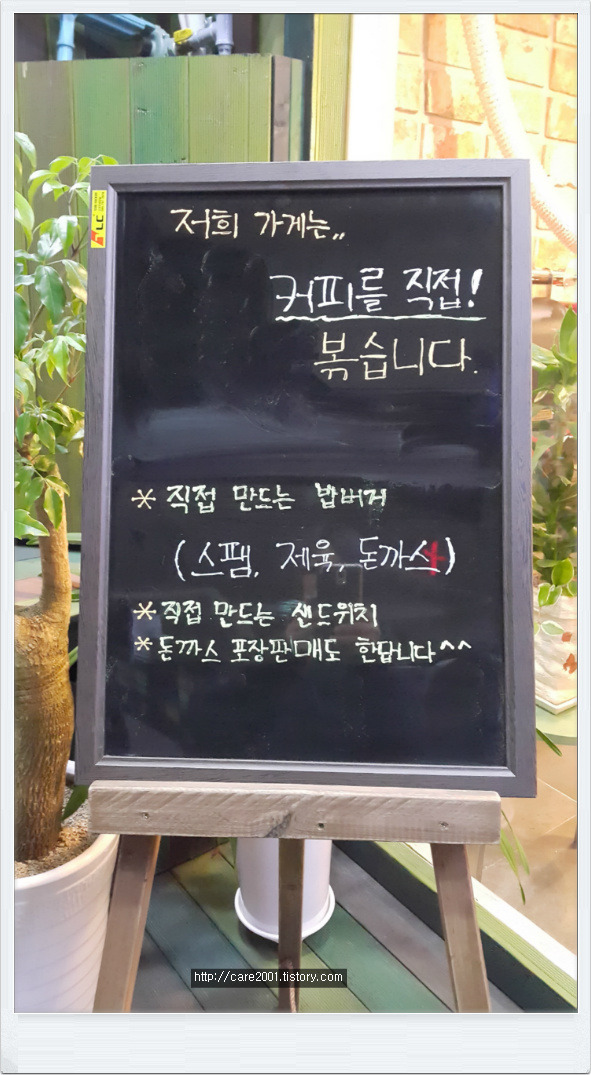 저희 가게는,,
커피를 직접!
볶습니다.
* 직접 만드는 밥버거
(스팸, 제육, 돈까스)
* 직접 만드는 샌드위치
* 돈까스 포장판매도 한답니다^^
http://care2001.tistory.com